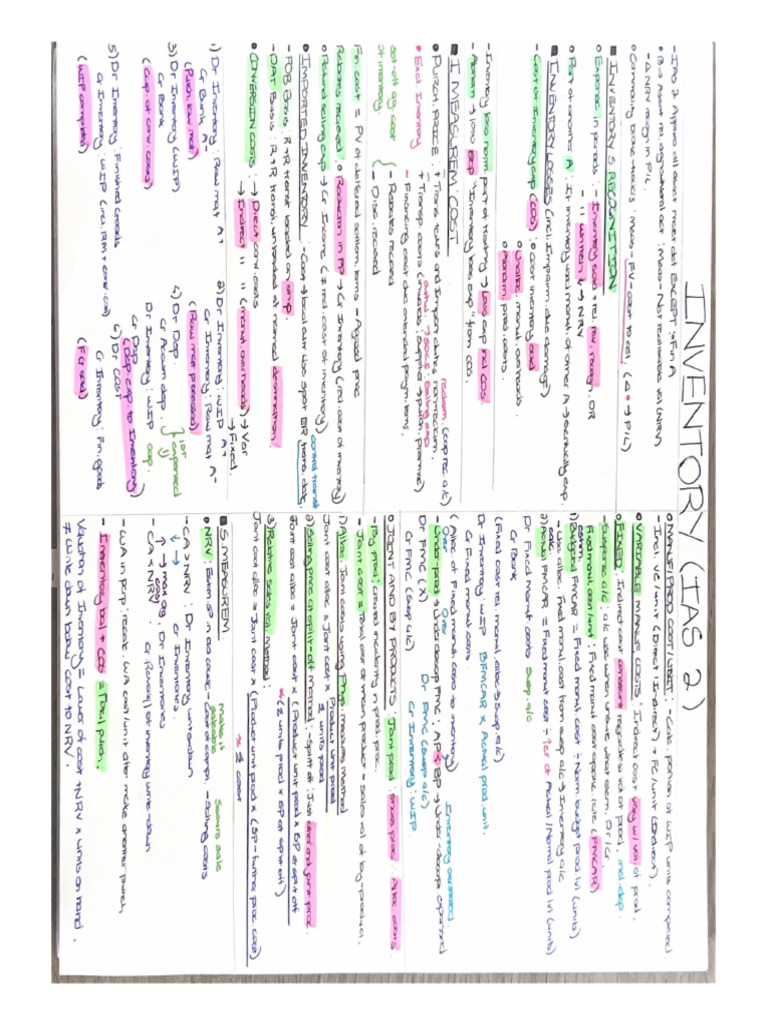 INVENTORY (IAS 2)
- IAS 2 Applies all asset meet def EXCEPT: • Fin A
• Bio Asset rel. agricultural act : Meas - Net realisable val (NRV)
- Δ NRV recogn in P/L.
• Commodity broker-traders : Meas - FV - cost to sell (Δ → P/L)
■ INVENTORY S RECOGNITION
• Expense in periods - Inventory sold + rel. rev. recogn. OR
- II written ↓ → NRV
• Part of another A : If inventory used manuf. of other A →
■ INVENTORY LOSSES (incl. impairm. due damage)
- Cost of inventory exp (COS) : • Cost inventory sold
• Unalloc. manuf. overheads
• Abnorm prod. costs.
- Inventory loss norm. part of trading → Loss exp incl COS.
- Abnorm → loss exp "Inventory loss exp" from COS.
■ I MEASUREM. COST
• PURCH PRICE : + Trans. taxes and import duties nonreclaim.
+ Transp. costs (inwards: supplier → purch. premise)
• Excl Inventory
- Financing cost due extended paym. terms.
- Rebates received
- Disc. received
Fin. cost = PV of deferred settlem. terms - Agreed price
Rebates received : • Reduction in PP → Cr Inventory (red. cost of inventory)
• Refund selling exp → Cr Income (≠ red. cost of inventory)
• IMPORTED INVENTORY - Cost → local curr. use spot ER trans. date.
- FOB Basis : R+R transf. loaded on ship.
- DAT Basis : R+R transf. unloaded at named destination
• CONVERSION COSTS : → Direct conv. costs
→ Indirect II II (manuf. overheads) → Var
→ Fixed.
1) Dr Inventory : Raw mat A↑
Cr Bank A-
(Purch. raw mat)
2) Dr Inventory : WIP A↑
Cr Inventory : Raw mat A-
(Raw mat processed)
3) Dr Inventory (WIP)
Cr Bank
(Cap of conv. costs)
4) Dr Dep.
Cr Accum dep.
Dr Inventory : WIP
Cr Dep
(Dep cap. to Inventory)
5) Dr Inventory : Finished Goods
Cr Inventory : WIP (incl. RM + conv. cos)
(WIP completed)
6) Dr COST
Cr Inventory : Fin. goods
(FG sold)
• MANUF/PROD COST/UNIT : - Calc. portion of WIP units completed
- Incl. VC/unit (Direct + Indirect) + FC/unit (Indirect).
• VARIABLE MANUF. COSTS : Indirect cost vary w/ vol of prod.
• FIXED : Indirect cost constant regardless vol of prod. incl. dep.
- Suspense a/c : a/c use when unsure what elem. Dr / Cr.
Fixed manuf. cost/unit : Fixed manuf cost applic. rate (FMCAR)
1) Budgeted FMCAR = Fixed manuf. cost ÷ Norm. budget prod lvl (units)
- Use alloc. Fixed manuf. cost from susp a/c → Inventory a/c
2) Actual FMCAR = Fixed manuf cost ÷ ↑er of Actual / Normal prod lvl (units)
Dr Fixed Manuf costs susp. a/c
Cr Bank
(Fixed cost rel. manuf. alloc → susp a/c)
Dr Inventory : WIP BFMCAR × Actual prod unit.
Cr Fixed manuf costs
(Alloc of Fixed manuf. costs to Inventory)
Dr FMC X)
Cr FMC (Susp a/c)
Dr FMC (Susp a/c)
Cr Inventory : WIP
• JOINT AND BY PRODUCTS
- By prod : created incidentally n prod. proc.
- Joint cost = Total cost of main product - sales val of by-product.
1) Alloc. Joint costs using Phys. measures Method
Joint cost alloc = Joint cost × Product unit prod
Σ units prod
2) Selling price at split-off Method : - Split off : just after end joint proc.
Joint cost alloc = Joint cost × (Product unit prod × SP at split off
(Σ units prod × SP at split off)
3) Relative sales val Method :
Joint cost alloc = Joint cost × (Product unit prod × (SP - further proc. cost)
■ S MEASUREM
• NRV : Estim SP in ord. course - Cost of compl. - Selling costs
Make it saleable
Secure sale
- CA > NRV : Dr Inventory writedown
Cr Inventory.
- CA < NRV : Dr Inventory
Cr Reversal of inventory write-down
- WA in perp : recalc. WA cost/unit after make another purch.
- Inventory bal + COS = Total purch.
Valuation of Inventory = Lower of cost + NRV × units on hand.
≠ Write down below cost to NRV.